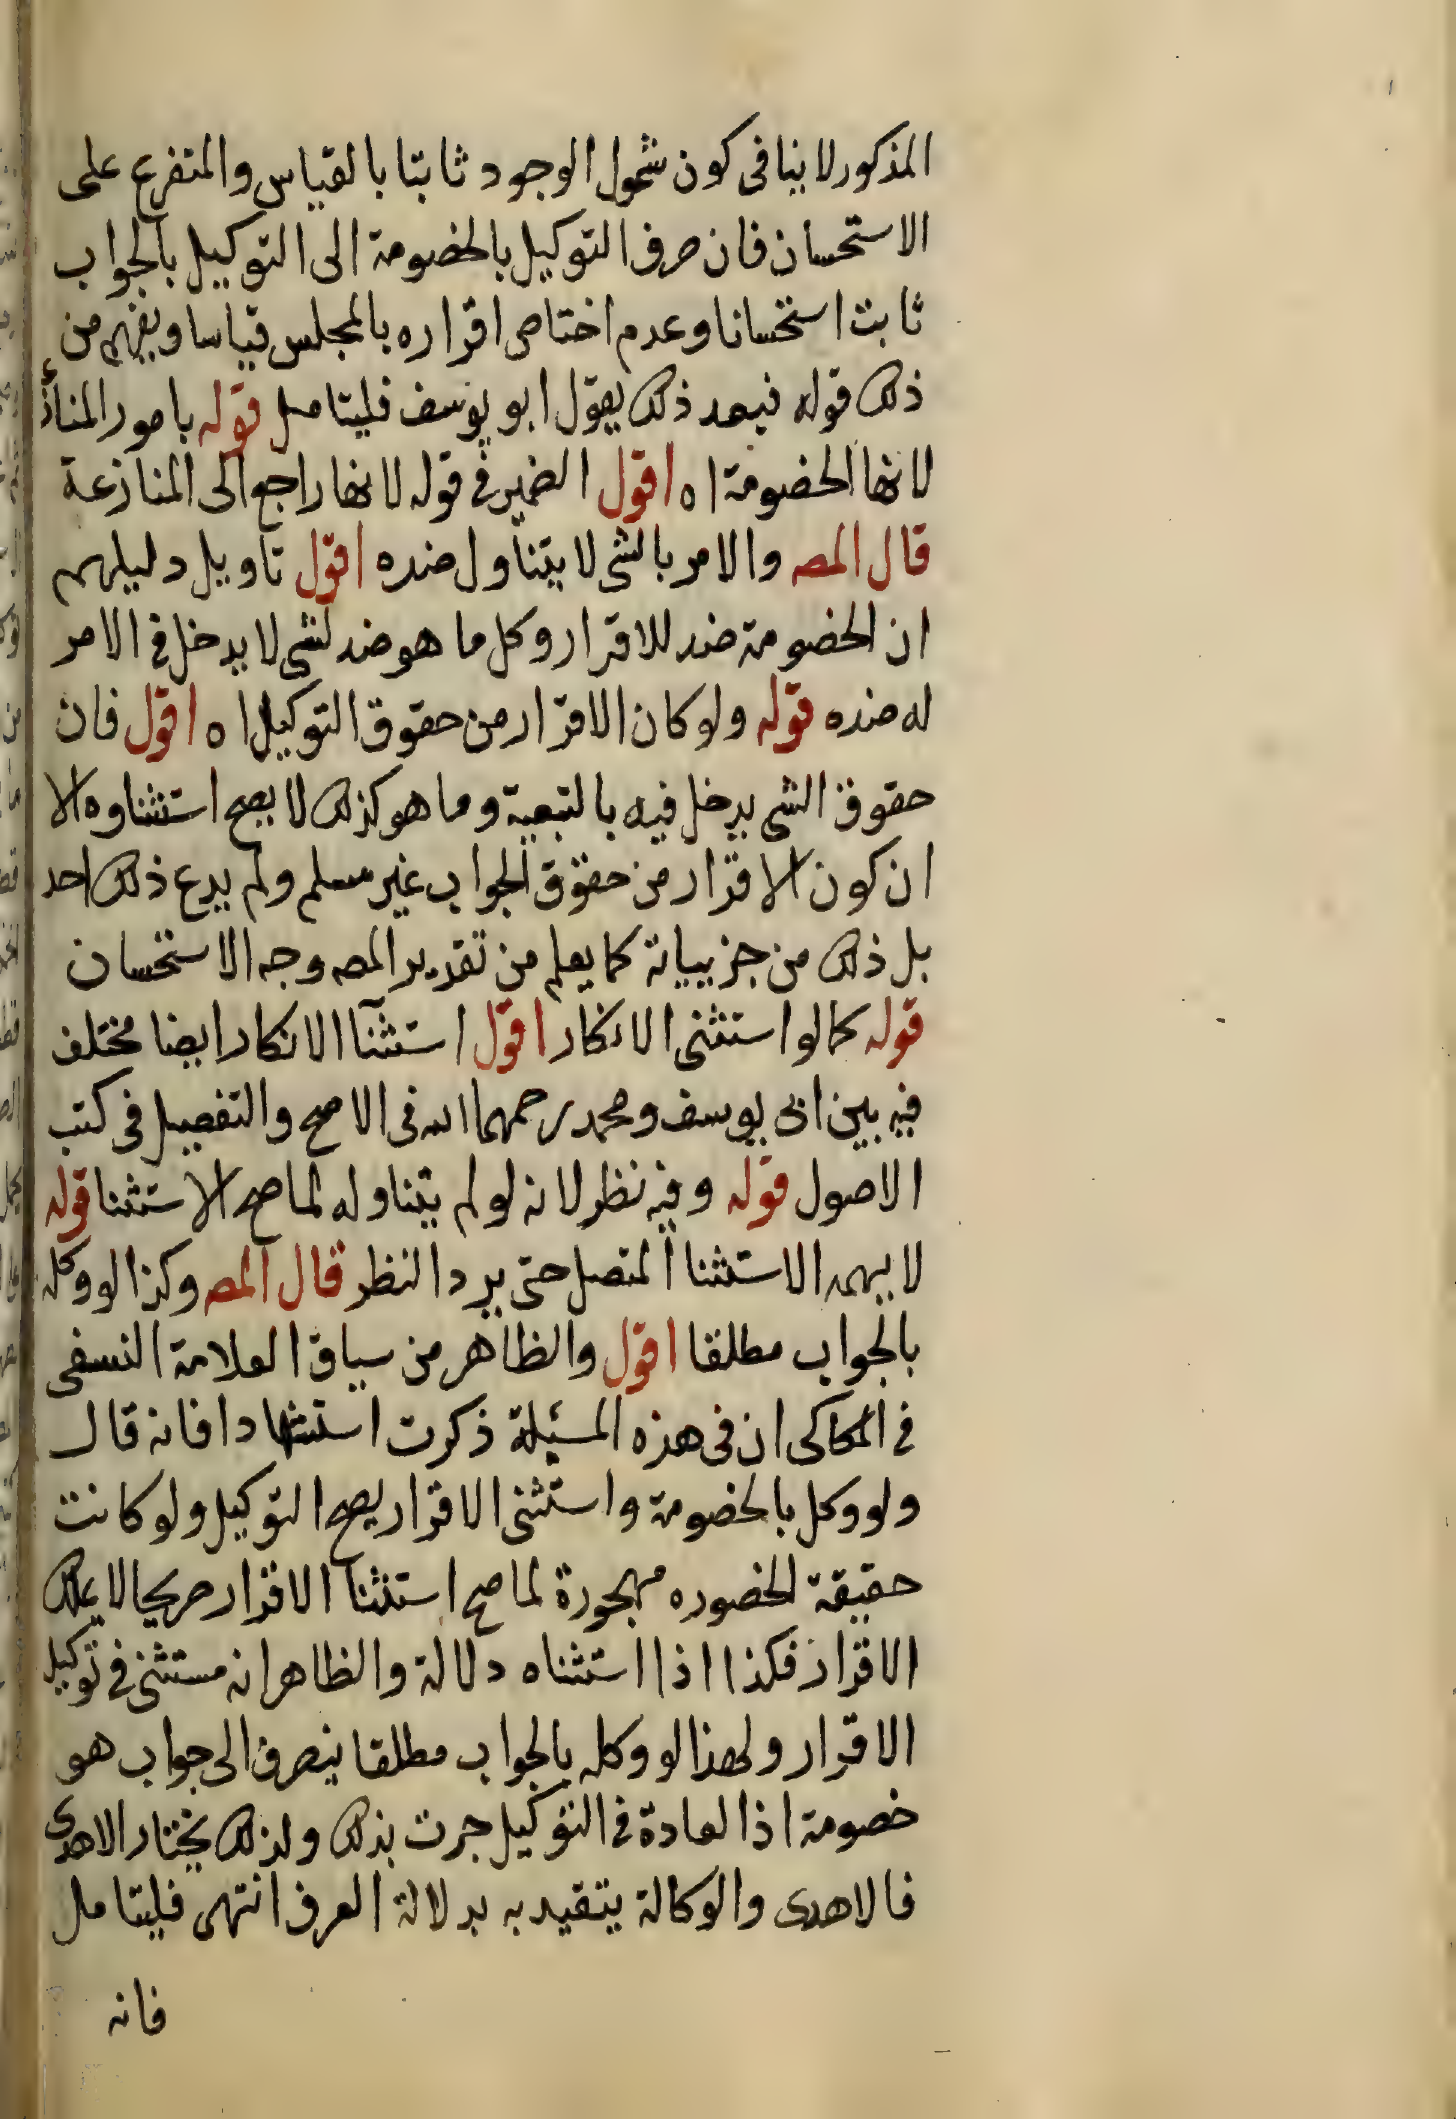 المذكور لا ينافى كون شمول الوجود ثابتا بالقياس والمتفرع على
الاستحسان فان صرف التوكيل بالخصومة الى التوكيل بالجواب
ثابت استحسانا وعدم اختاص اقراره بالمجلس قياسا ويفهم من
ذلك قوله فبعد ذلك يقول ابو يوسف فليتامل قوله بامور المناز
لانها الخصومة اه اقول الضمير فى قوله لانها راجع الى المنازعة
قال المصه والامر بالشى لا يتناول ضده اقول تاويل دليلهم
ان الخصومة ضد للاقرار وكل ما هو ضد لشى لا يدخل فى الامر
له ضده قوله ولو كان الاقرار من حقوق التوكيل اه اقول فان
حقوق الشى يدخل فيه بالتبعية وما هو كذلك لا يصح استثناوه الا
ان كون الاقرار من حقوق الجواب غير مسلم ولم يدع ذلك احد
بل ذلك من جزيياته كما يعلم من تقدير المصه وجه الاستحسان
قوله كما لو استثنى الانكار اقول استثنآ الانكار ايضا مختلف
فيه بين ابى يوسف ومحمد رحمهما الله فى الاصح والتفصيل فى كتب
الاصول قوله وفيه نظر لانه لو لم يتناوله لما صح الاستثنا قوله
لا يهمه الاستثنا المتصل حتى يرد النظر قال المصه وكذا لو وكله
بالجواب مطلقا اقول والظاهر من سياق العلامة النسفى
فى الكاكى ان فى هذه المسئلة ذكرت استشهادا فانه قال
ولو وكل بالخصومة واستثنى الاقرار يصح التوكيل ولو كانت
حقيقة الخصوره مهجورة لما صح استثنا الاقرار صريحا لا يملك
الاقرار فكذا اذا استثناه دلالة والظاهر انه مستثنى فى توكيل
الاقرار ولهذا لو وكله بالجواب مطلقا ينصرف الى جواب هو
خصومة اذ العادة فى التوكيل جرت بذلك ولذلك يختار الاهدى
فالاهدى والوكالة يتقيد به بدلالة العرف انتهى فليتامل
فانه